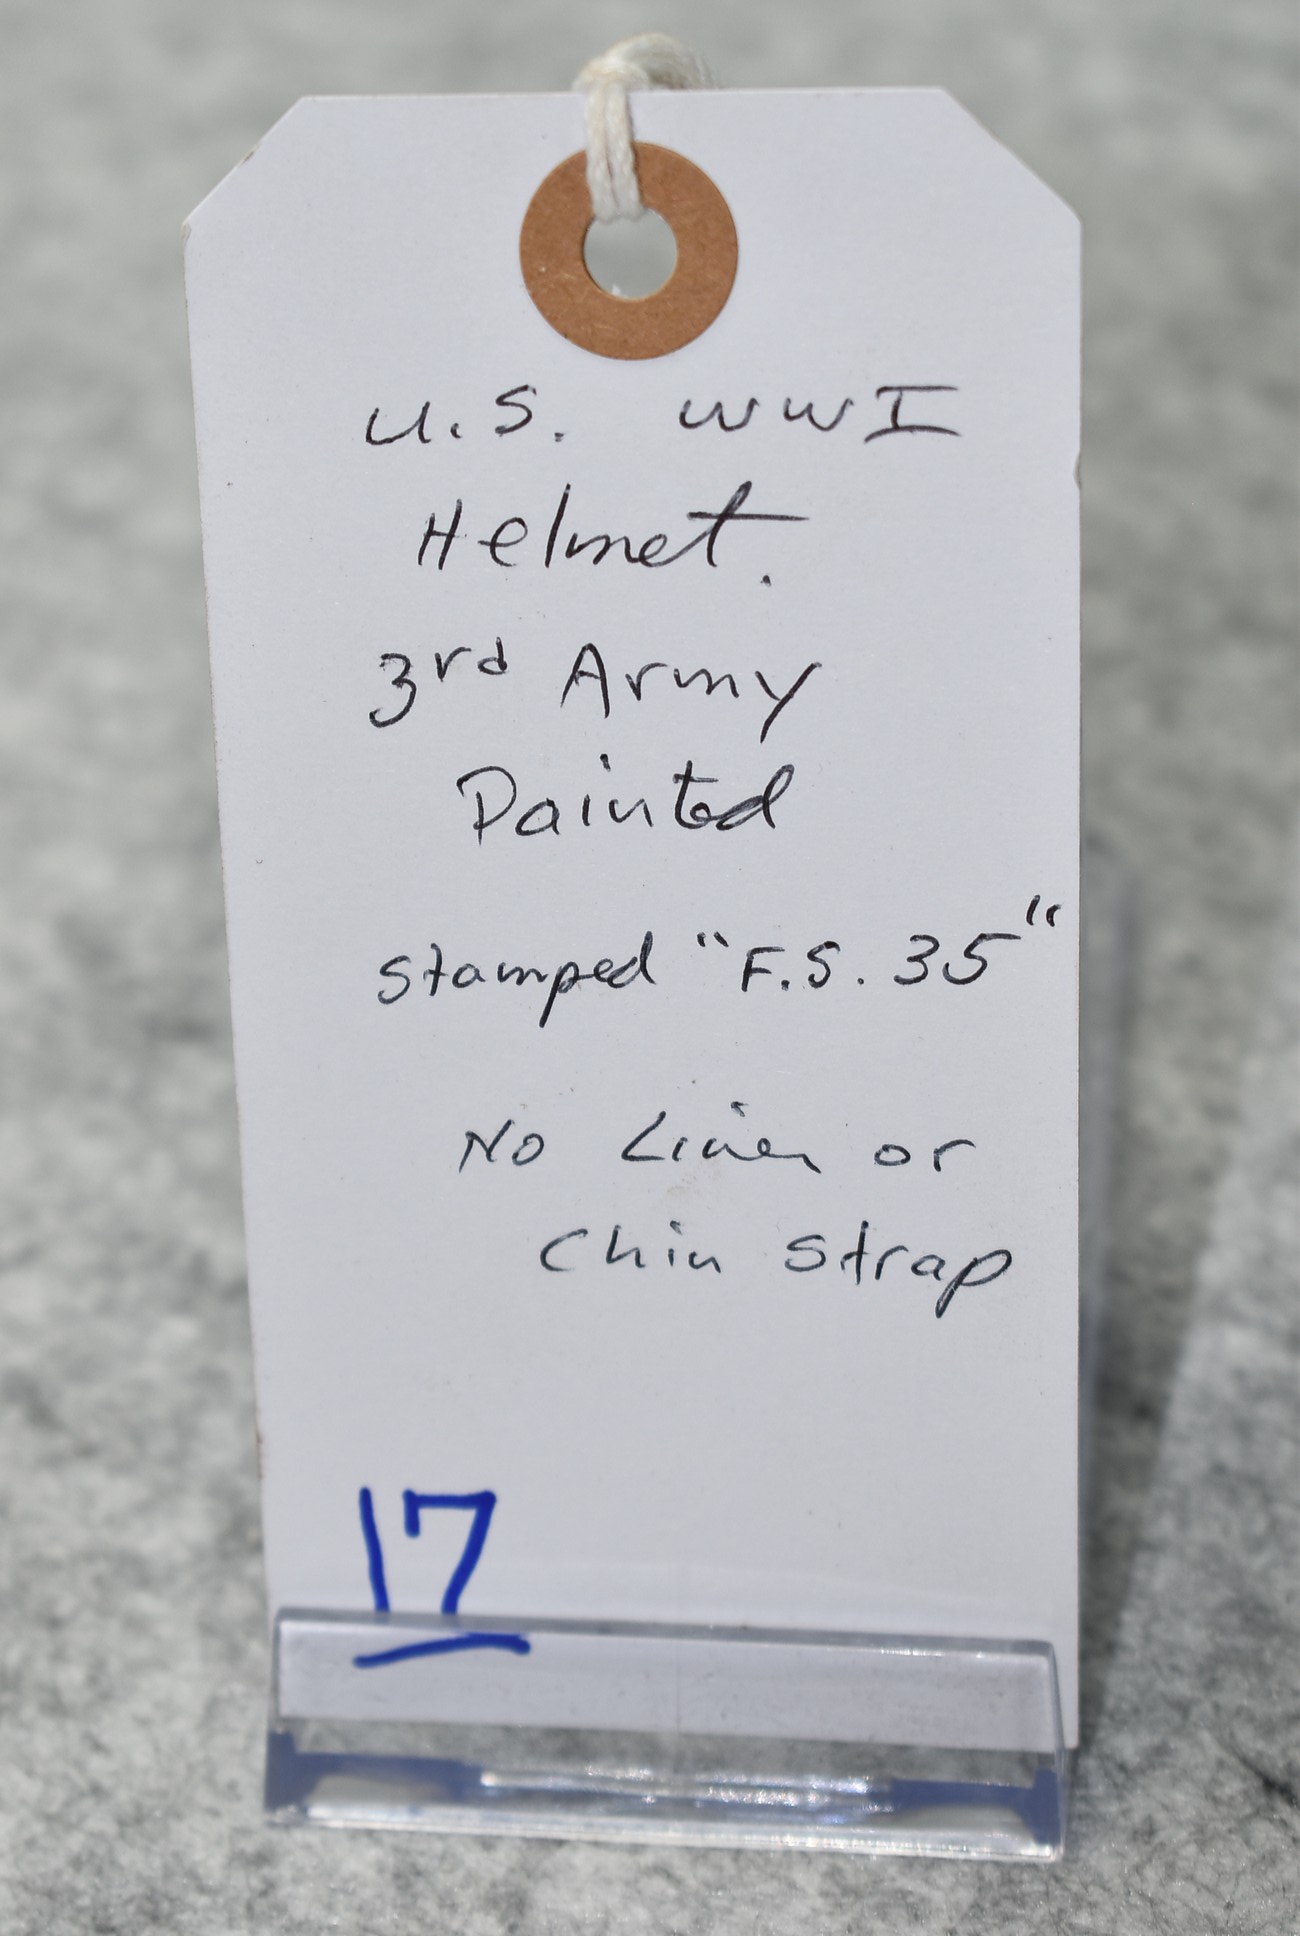 U.S. WWI
Helmet.
3rd Army
Painted
Stamped "F.S. 35"
No Liner or
Chin Strap
17